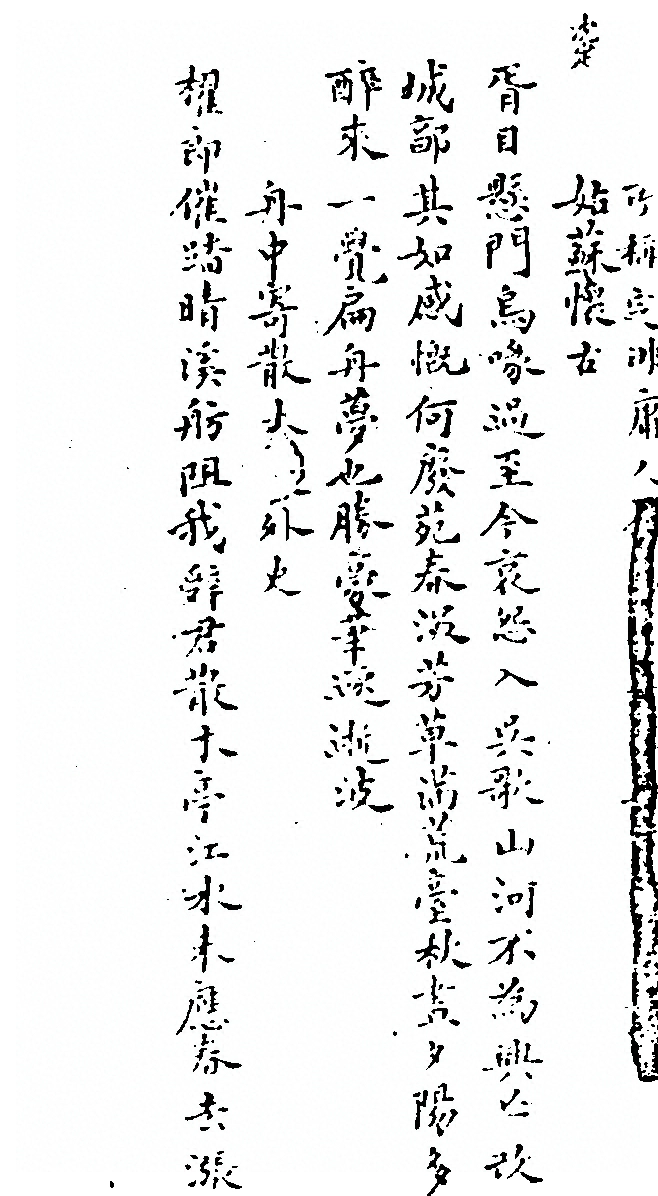 可稱定非庸人
姑蘇懷古
胥目懸門烏喙過至今哀怨入吳歌山河不為興亡改
城郭其如感慨何廢苑春深芳草滿荒臺秋盡夕陽多
醉來一覺扁舟夢也勝豪華逐逝波
舟中寄散木外史
櫂郎催踏晴溪舫阻我辭君散木亭江水未應春去漲